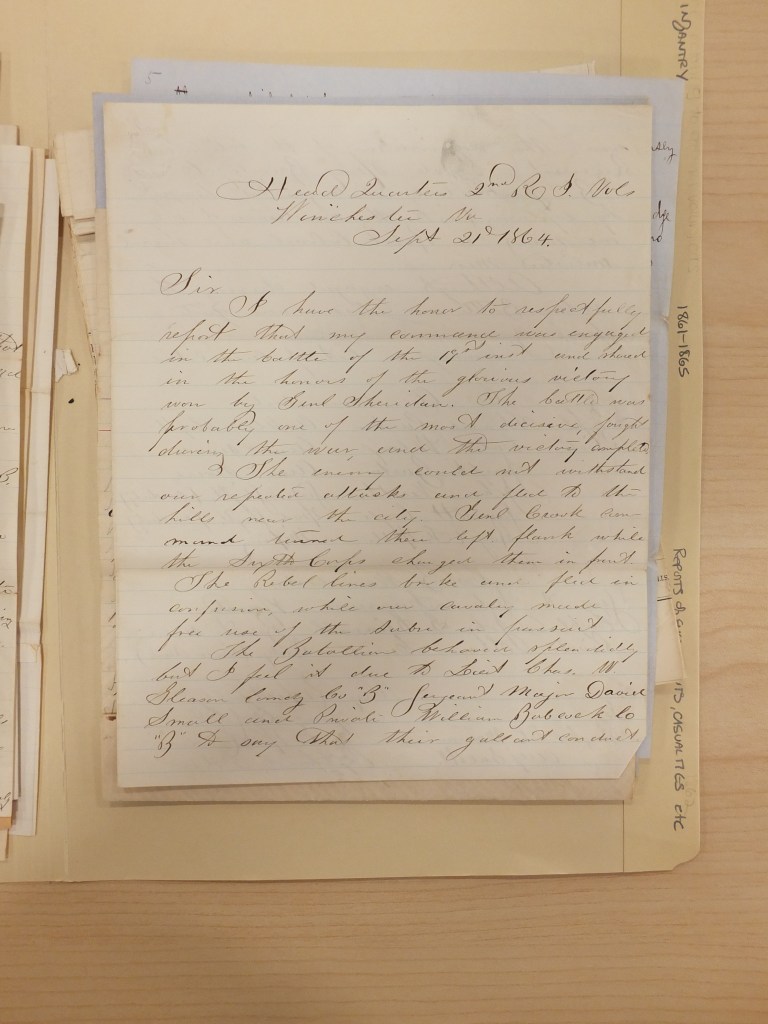 Head Quarters 2nd R I. Vols
Winchester Va
Sept 21st 1864.
Sir
I have the honor to respectfully
report that my command was engaged
in the battle of the 19th inst and shared
in the honors of the glorious victory
won by Genl Sheridan. The battle was
probably one of the most decisive, fought
during the war, and the victory complete
The enemy could not withstand
our repeated attacks and fled to the
hills near the city. Genl Crook com-
mand turned their left flank while
the Sixth Corps charged them in front.
The Rebel lines broke and fled in
confusion, while our cavalry made
free use of the Sabre in pursuit
The Batallion behaved splendidly
but I feel it due to Lieut Chas. W
Gleason comdg Co "B" Sergeant Major David
Small and Private William Babcock Co
"B" to say that their gallant conduct
5
INFANTRY
1861-1865
REPORTS
, CASUALTIES etc